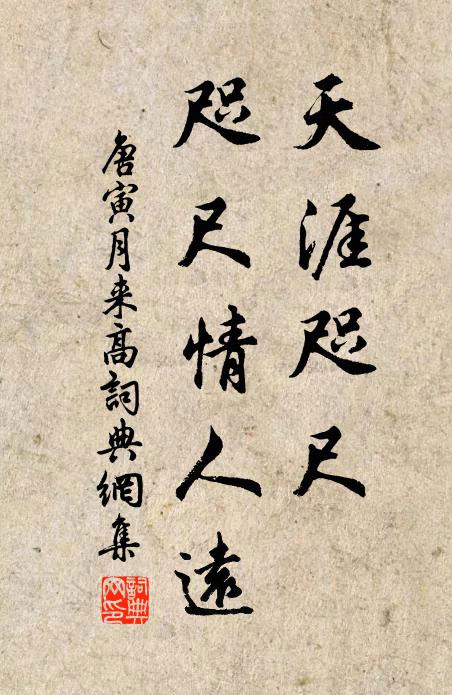 天涯咫尺
咫尺情人遠
唐寅月来高詞典網集
詞典網印